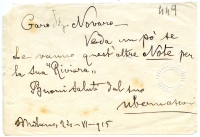 449
Caro Novaro
Veda un po' se
Le vanno quest'altre Note per
la sua "Riviera".
Buoni saluti dal suo
Milano, 24-VI-915